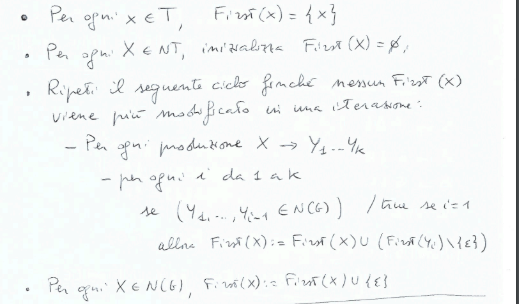 • Per ogni x ∈ T, First(x) = {x}
• Per ogni X ∈ NT, inizializza First(X) = ∅,
• Ripeti il seguente ciclo finché nessun First(X)
viene più modificato in una iterazione:
– Per ogni produzione X → Y1...Yk
– per ogni i da 1 a k
se (Y1,...,Yi-1 ∈ N(G)) / true se i=1
allora First(X) := First(X) ∪ (First(Yi) \ {ε})
• Per ogni X ∈ N(G), First(X) := First(X) ∪ {ε}